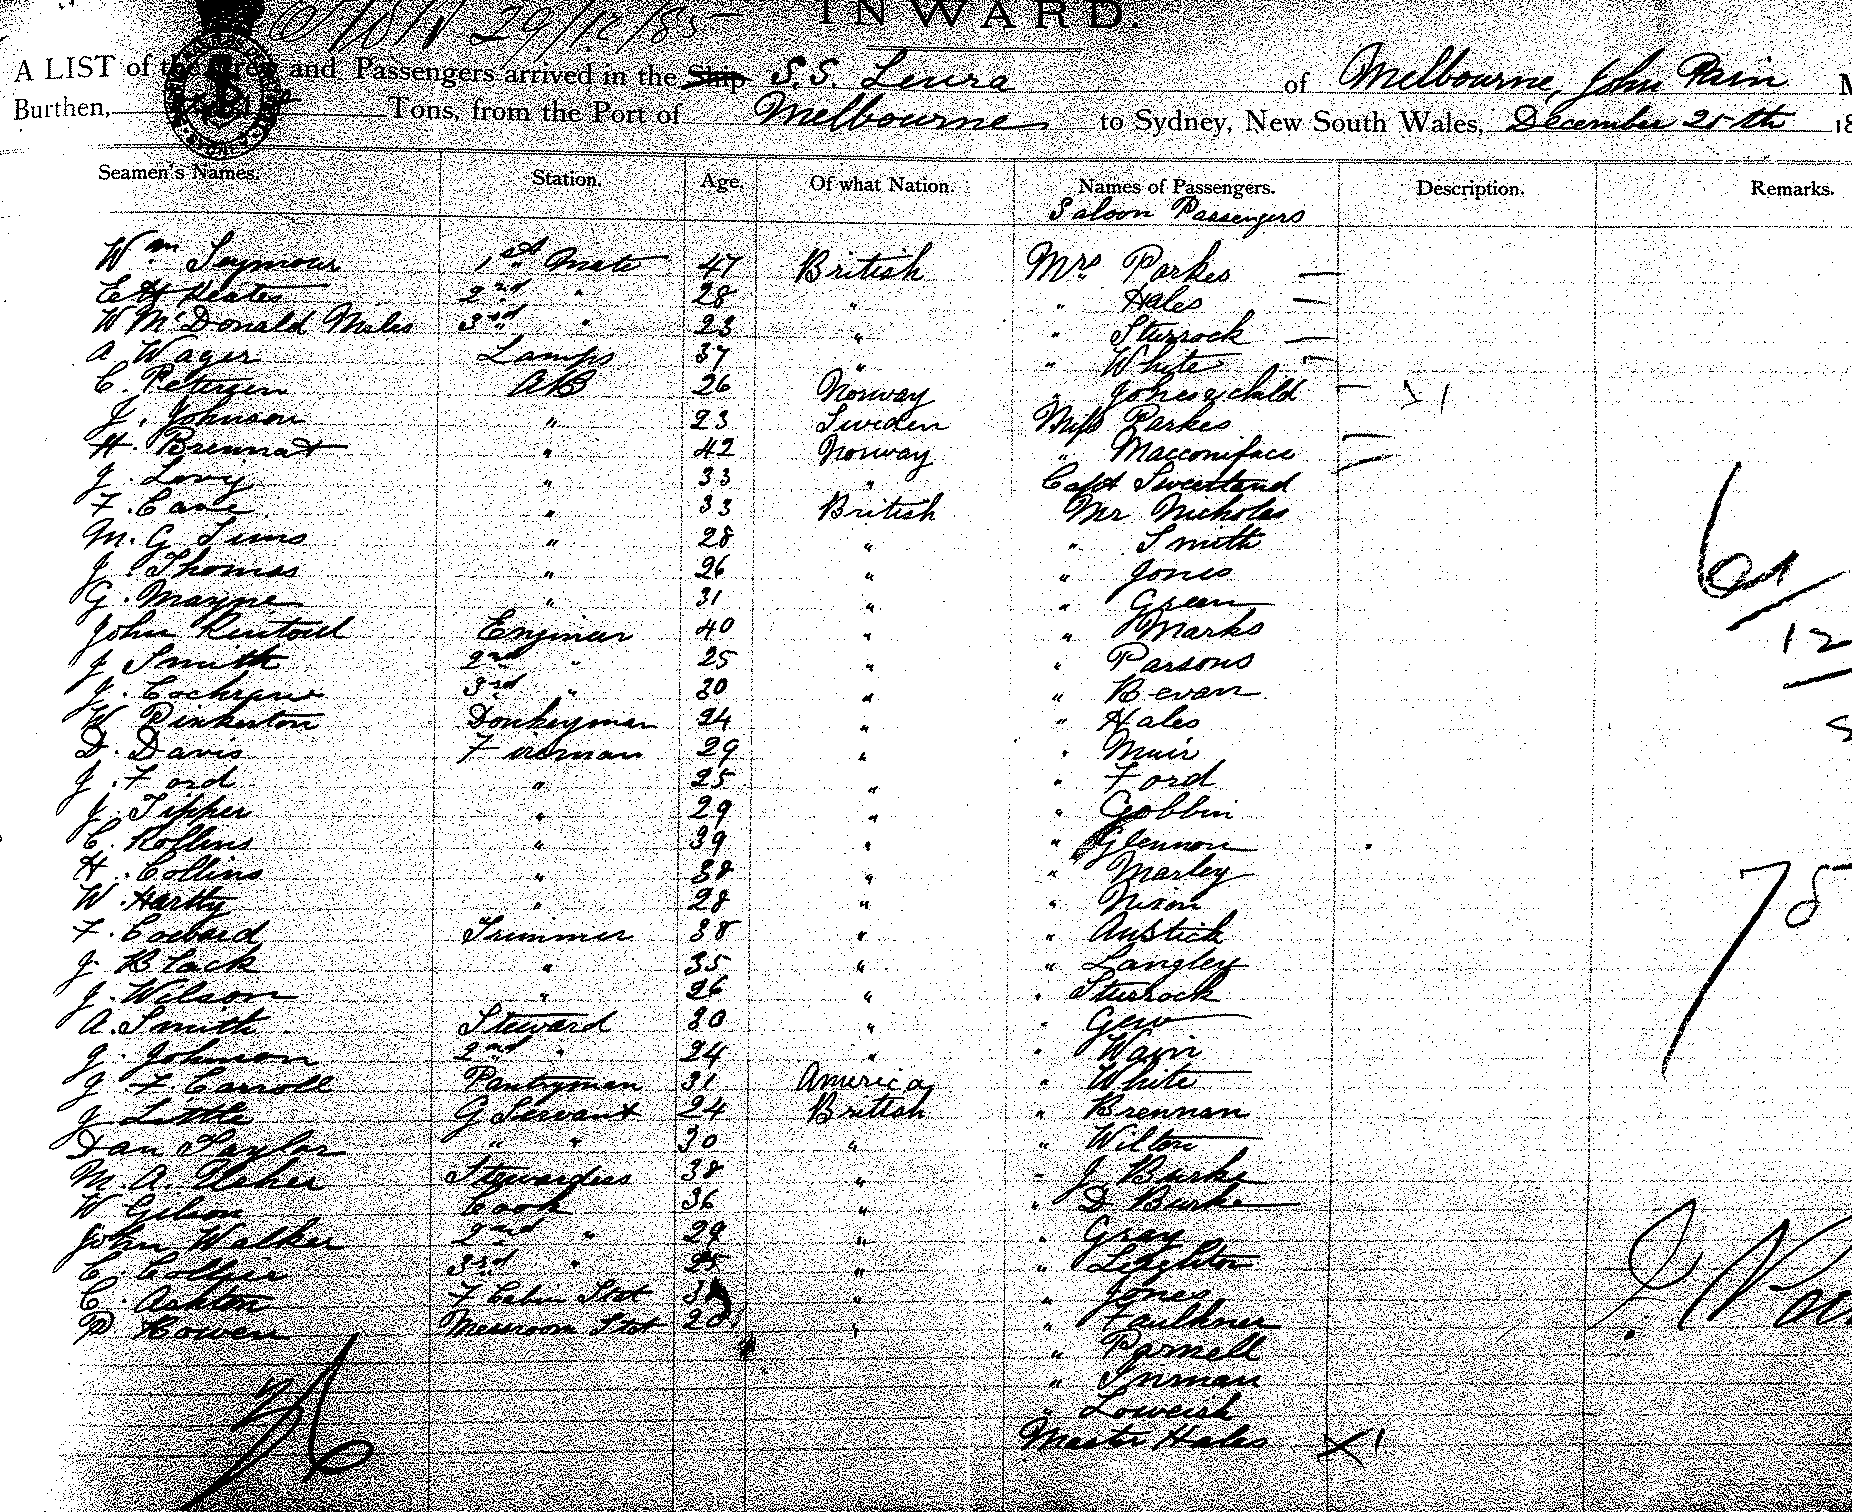 INWARD.
29/12/85
A LIST of the Crew and Passengers arrived in the Ship S.S. Leura of Melbourne, John Pain M
Burthen, Tons, from the Port of Melbourne to Sydney, New South Wales, December 25th 18
Seamen's Names. Station. Age. Of what Nation. Names of Passengers. Description. Remarks.
Saloon Passengers
Wm Seymour 1st Mate 47 British Mrs Parkes —
E H Keates 2nd " 28 " " Hales —
W McDonald Miles 3rd " 23 " " Sturrock —
A Wager Lamps 37 " " White —
C. Petersen AB 26 Norway " Jones & child —
J. Johnson " 23 Sweden Miss Parkes
H. Brennat " 42 Norway " Macconiface
J. Levy " 33 " Capt Sweetland
F. Cane " 33 British Mr Nicholas
M. G Sims " 28 " " Smith
J. Thomas " 26 " " Jones
G. Mayne " 31 " " Green
John Rentoul Engineer 40 " " Marks
J Smith 2nd " 25 " " Parsons
J. Cochrane 3rd " 30 " " Bevan
W Pinkerton Donkeyman 24 " " Hales
D. Davis Fireman 29 " " Muir
J. Ford " 25 " " Ford
J. Tipper " 29 " " Gobbin
C. Rollins " 39 " " Glennon
H. Collins " 38 " " Marley
W. Hartty " 28 " " Nixon
F. Trimmer 38 " " Austick
J. Black " 35 " " Langley
J. Wilson " 26 " " Sturrock
A. Smith Steward 30 " " Gew
J. Johnson 2nd " 24 " "
J. F. Carroll Pantryman 31 America " White
J Little G Servant 24 British " Brennan
Dan Taylor " " 30 " " Wilton
M. A. Fisher Stewardess 38 " " J Burke
W Gibson Cook 36 " " D Burke
John Walker 2nd " 29 " " Gray
C. Collyer 3rd " 25 " " Leighton
C. Ashton F Cabin Stot " " Jones
P. Cowen Messroom Stot " " Faulkner
" Parnell
" Inman
"
Master Hales X 1
12
78